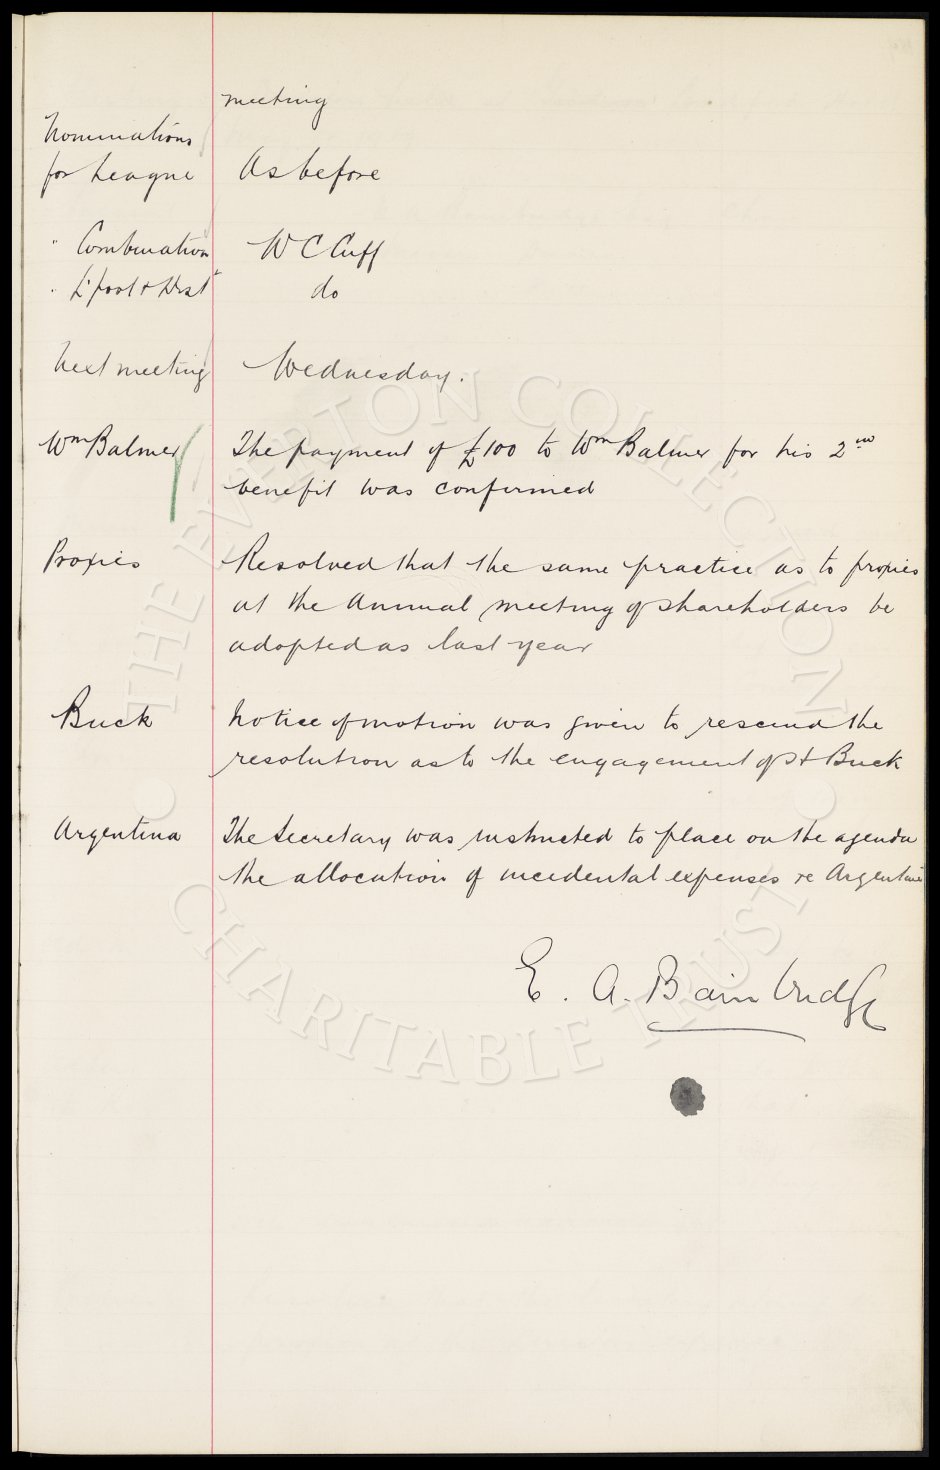 meeting
Nominations
for League As before
" Combination W C Cuff
" L'pool & Dist do
Next meeting Wednesday.
Wm Balmer The payment of £100 to Wm Balmer for his 2nd
benefit was confirmed
Proxies Resolved that the same practice as to proxies
at the Annual meeting of shareholders be
adopted as last year
Buck Notice of motion was given to rescind the
resolution as to the engagement of H Buck
Argentina The Secretary was instructed to place on the agenda
the allocation of incidental expenses re Argentine
E. A. Bainbridge
© THE EVERTON COLLECTION
CHARITABLE TRUST ©